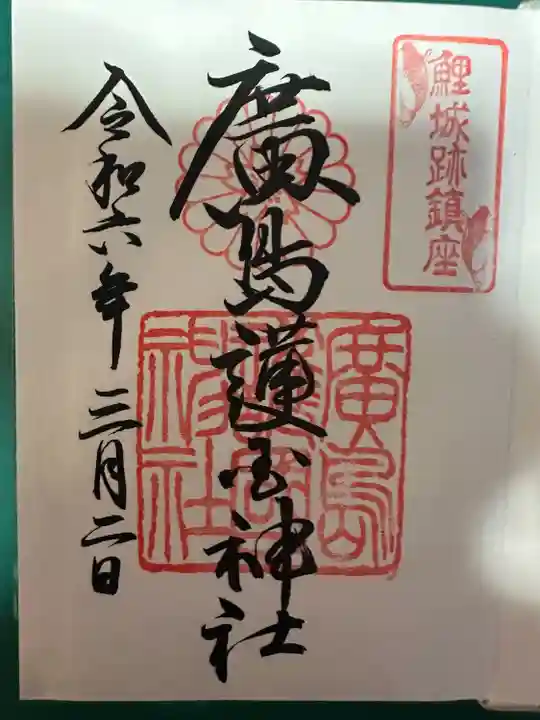 鯉城跡鎮座
廣島護国神社
廣島
護國
神社
令和六年三月二日